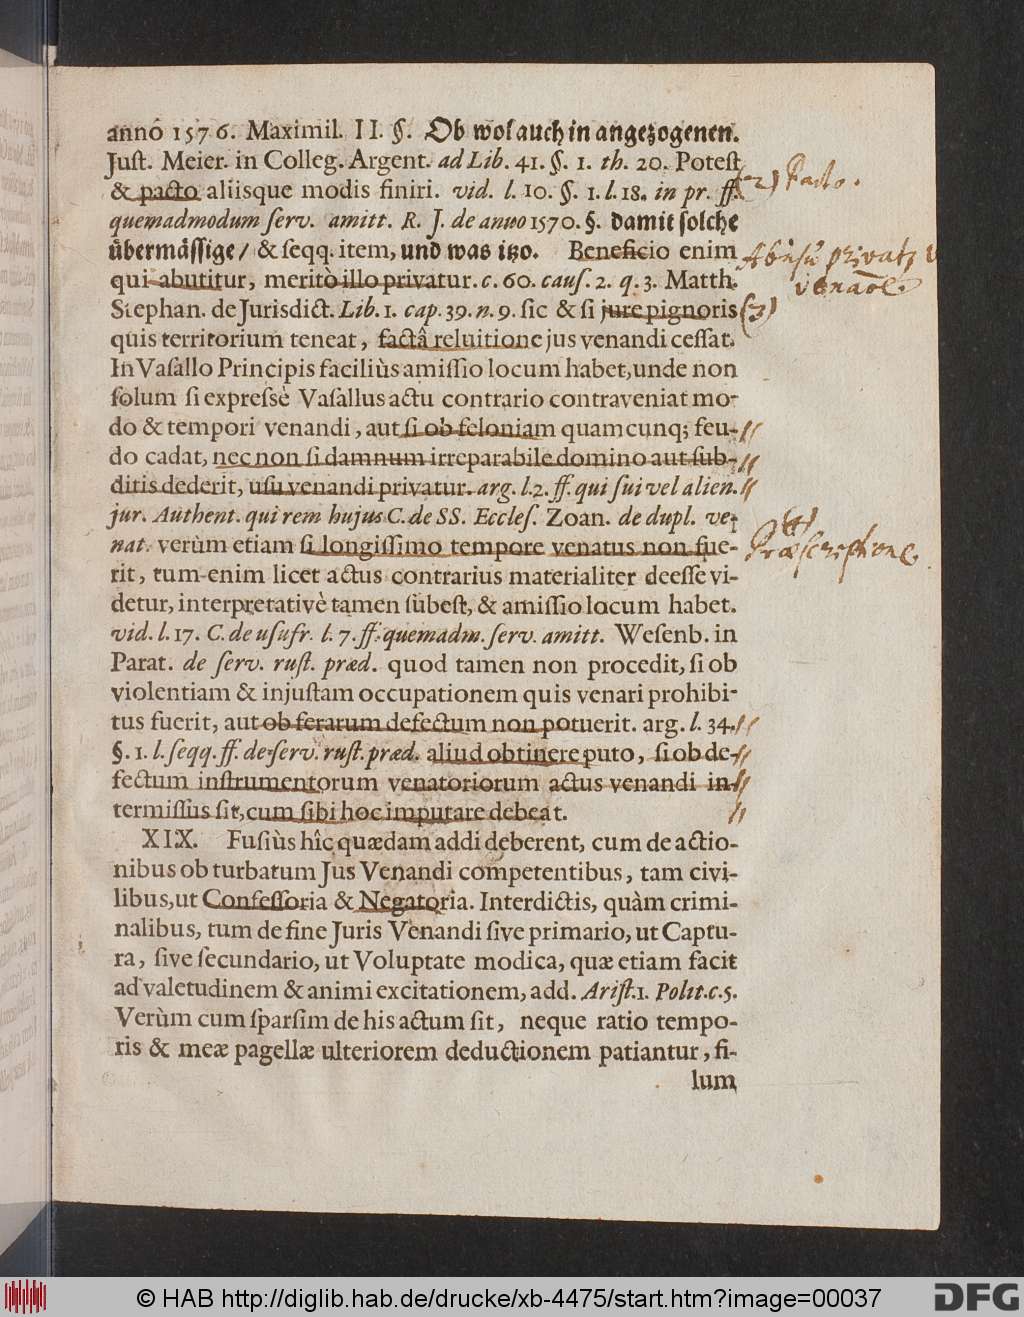 annô 1576. Maximil. II. §. Ob wol auch in angezogenen.
Juſt. Meier. in Colleg. Argent. ad Lib. 41. §. 1. th. 20. Poteſt
& pacto aliisque modis finiri. vid. l. 10. §. 1. l. 18. in pr. ff.
(2) Pacto.
quemadmodum ſerv. amitt. R. J. de anno 1570. §. damit ſolche
übermäſſige / & ſeqq. item, und was itzo. Beneficio enim
qui abutitur, meritò illo privatur. c. 60. cauſ. 2. q. 3. Matth.
Abusu privat
Stephan. de Jurisdict. Lib. 1. cap. 39. n. 9. ſic & ſi jure pignoris
(3)
quis territorium teneat, factâ reluitione jus venandi ceſſat.
In Vaſallo Principis faciliùs amiſſio locum habet, unde non
ſolum ſi expreſsè Vaſallus actu contrario contraveniat mo-
do & tempori venandi, aut ſi ob feloniam quamcunq; feu-
do cadat, nec non ſi damnum irreparabile domino aut ſub-
ditis dederit, uſu venandi privatur. arg. l. 2. ff. qui ſui vel alien.
jur. Authent. qui rem hujus C. de SS. Eccleſ. Zoan. de dupl. ve-
(4)
nat. verùm etiam ſi longiſſimo tempore venatus non fue-
Præscriptione.
rit, tum enim licet actus contrarius materialiter deeſſe vi-
detur, interpretativè tamen ſubeſt, & amiſſio locum habet.
vid. l. 17. C. de uſufr. l. 7. ff. quemadm. ſerv. amitt. Weſenb. in
Parat. de ſerv. ruſt. præd. quod tamen non procedit, ſi ob
violentiam & injuſtam occupationem quis venari prohibi-
tus fuerit, aut ob ferarum defectum non potuerit. arg. l. 34.
§. 1. l. ſeqq. ff. de ſerv. ruſt. præd. aliud obtinere puto, ſi ob de-
fectum inſtrumentorum venatoriorum actus venandi in-
termiſſus ſit, cum ſibi hoc imputare debeat.
XIX. Fuſiùs hîc quædam addi deberent, cum de actio-
nibus ob turbatum Jus Venandi competentibus, tam civi-
libus, ut Confeſſoria & Negatoria. Interdictis, quàm crimi-
nalibus, tum de fine Juris Venandi ſive primario, ut Captu-
ra, ſive ſecundario, ut Voluptate modica, quæ etiam facit
ad valetudinem & animi excitationem, add. Ariſt. 1. Polit. c. 5.
Verùm cum ſparſim de his actum ſit, neque ratio tempo-
ris & meæ pagellæ ulteriorem deductionem patiantur, fi-
lum
© HAB http://diglib.hab.de/drucke/xb-4475/start.htm?image=00037
DFG